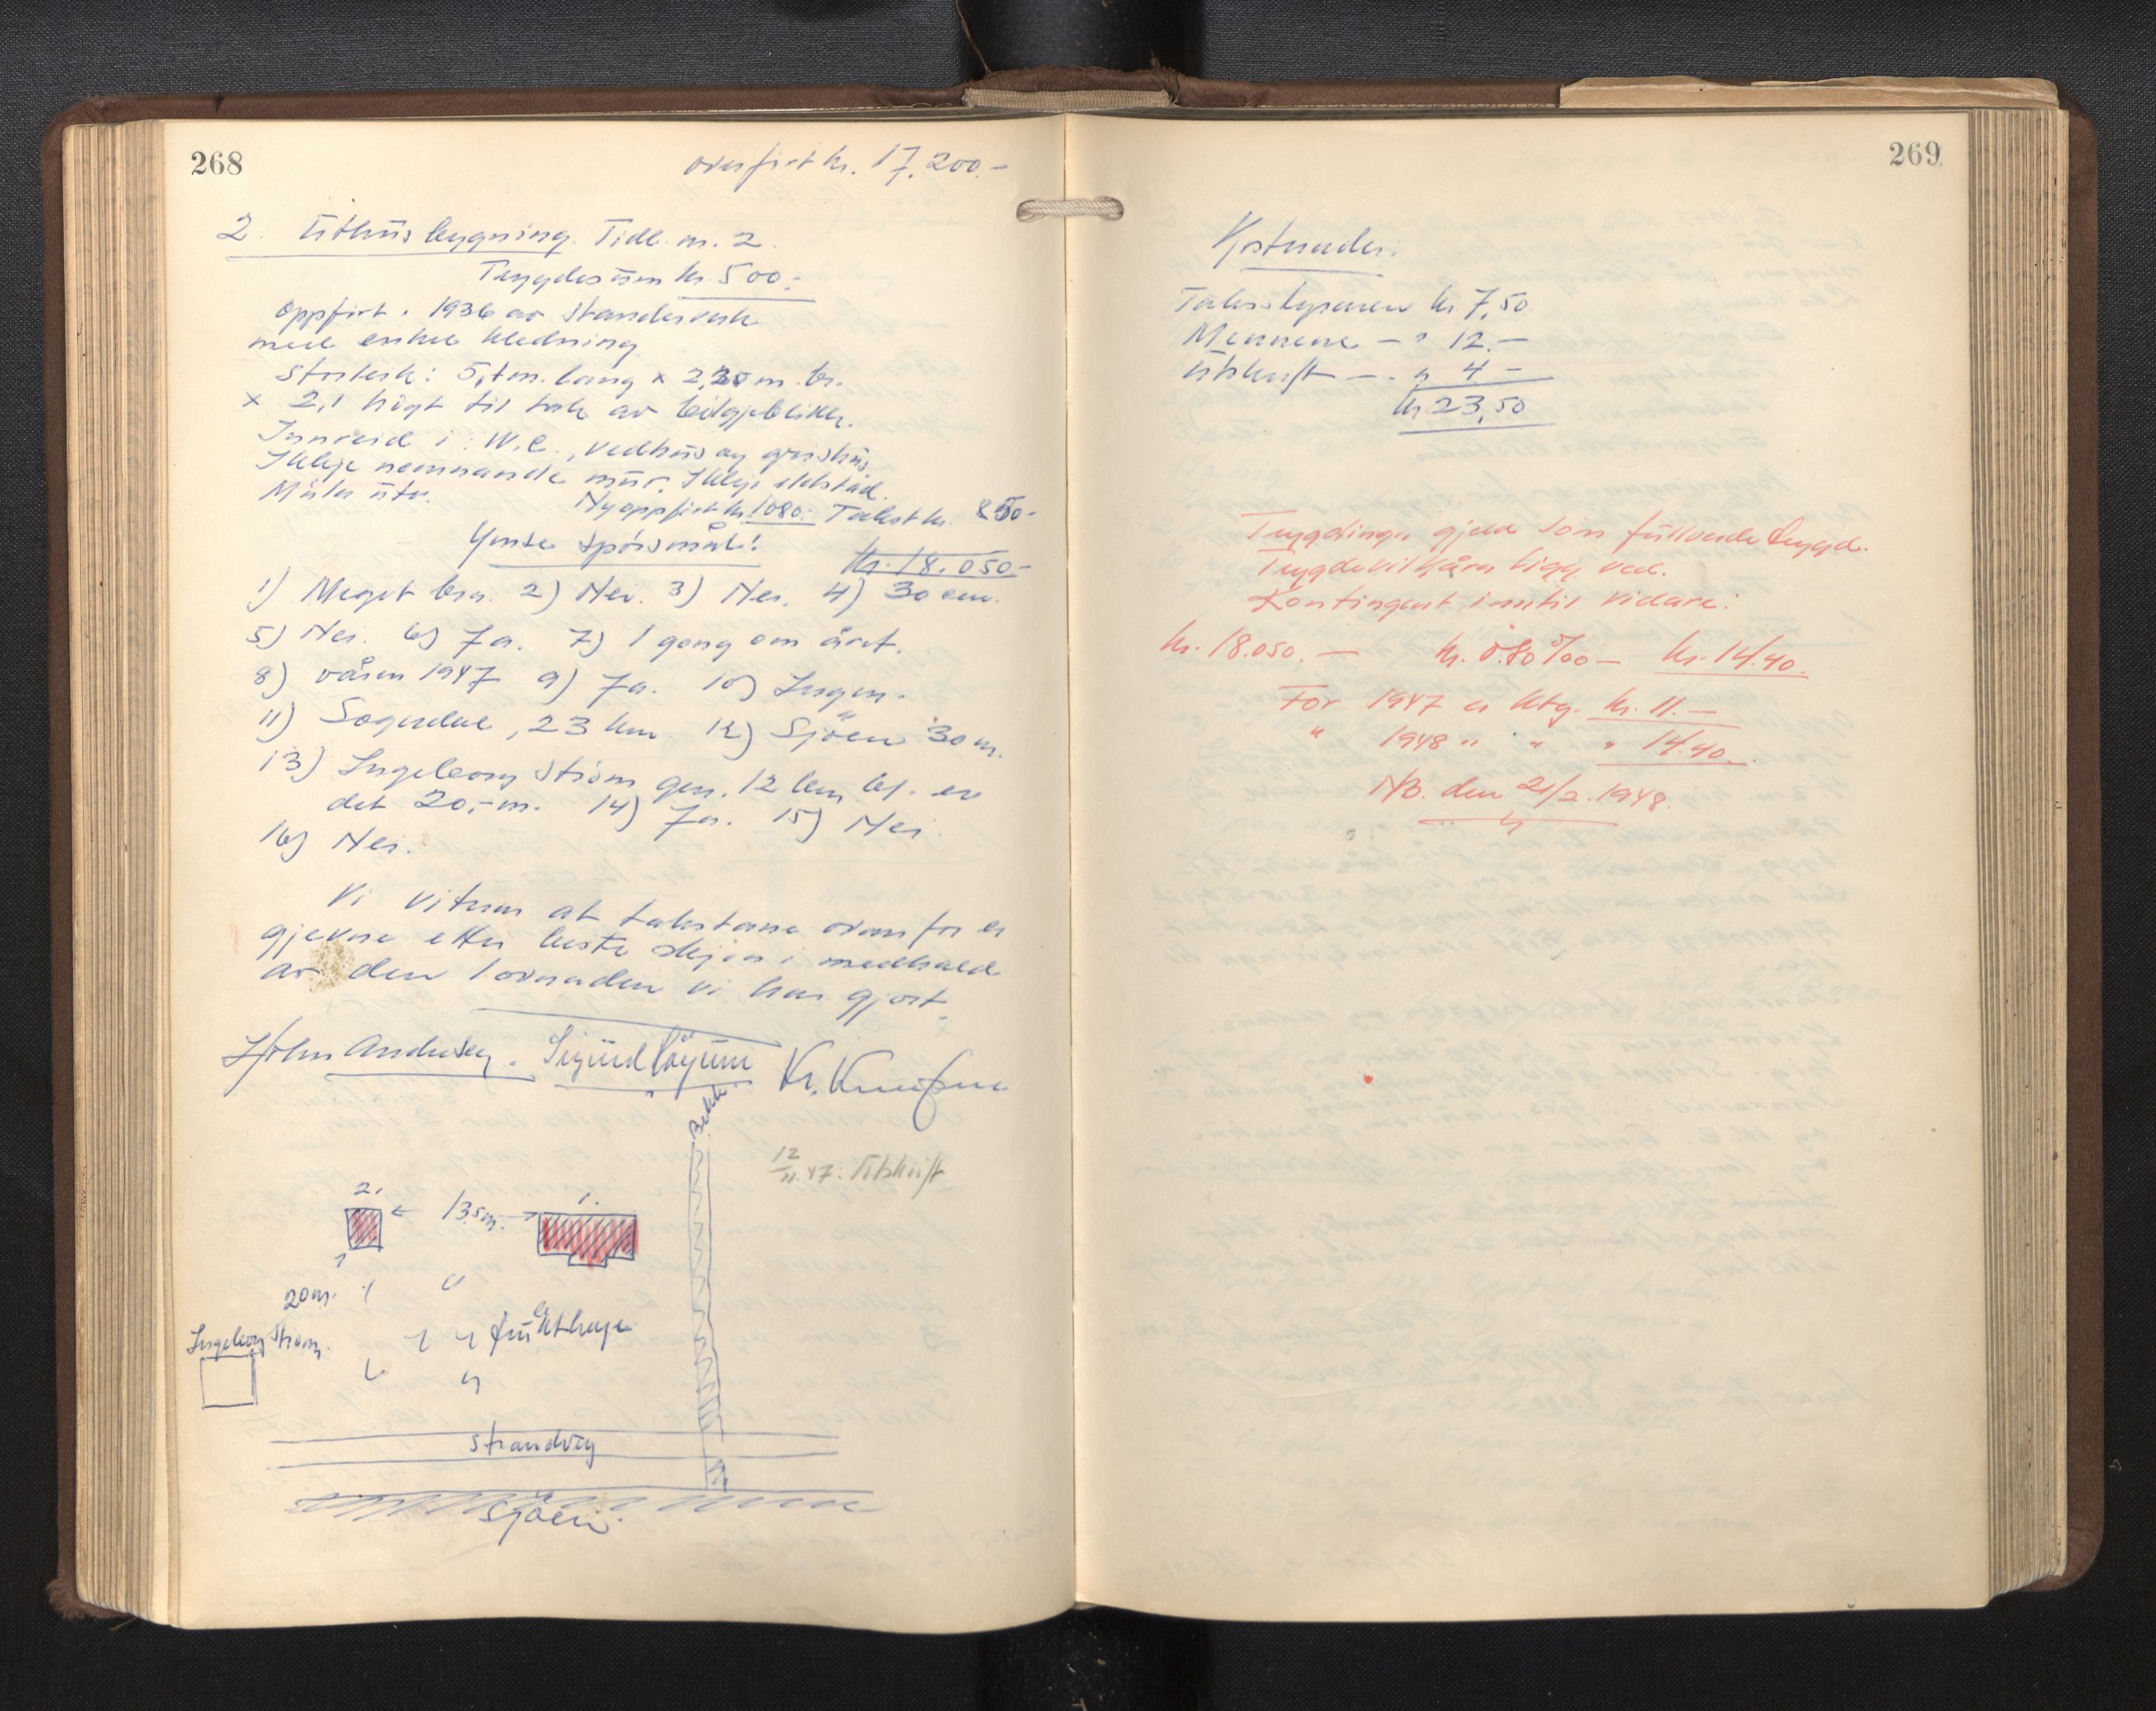 268
overfirt kr. 17.200.-
2. Uthusbygning. Tidl. nr. 2.
Trygdesum kr. 500.-
Oppfirt i 1936 av standerverk
med enkel kledning.
Storleik: 5,1 m. lang x 2,20 m. br.
x 2,1 högt til tak av bölgjeblikk.
Innreid i: W.C., vedhus og grishus.
Ikkje nemnande mur. Ikkje eldstad.
Måla utv.
Nyoppfirt kr. 1080.- Takst kr. 850.-
Ymse spörsmål:
kr. 18.050.-
1) Meget bra. 2) Nei. 3) Nei. 4) 30 cm.
5) Nei. 6) Ja. 7) 1 gong om året.
8) våren 1947 9) Ja. 10) Ingen.
11) Sogndal, 23 km 12) Sjöen 30 m.
13) Ingeborg Ström gnr. 12 bnr. 61. er
det 20,- m. 14) Ja. 15) Nei.
16) Nei.
Vi vitnar at takstane ovanfor er
gjevne etter beste skjön i medhald
av den lovnaden vi har gjort.
John Andersen. Sigurd Köyum Kr. Knutsen
Bekk
12/11.47. Utskrift
2. 13,5 m. 1.
20 m.
Ingeborg Ström.
frukthage
Strandveg
Sjöen.
269
Kostnader:
Takststyraren kr. 7,50
Mennene — " 12.—
Utskrift — " 4 —
kr. 23,50
Trygdinga gjeld som fullverde trygd.
Trygdevilkåra ligg ved.
Kontingent inntil vidare:
kr. 18.050.— kr. 0.80 ‰ — kr. 14.40.
For 1947 er ktg. kr. 11.—
" 1948 " " " 14.40.
NB. den 21/2. 1948.